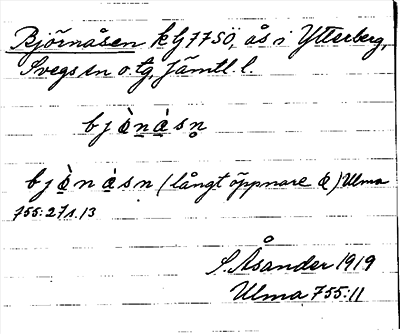 Björnåsen kG 7750, ås i Ytterberg,
Svegs sn o. tg, Jämtl. l.
b j ö̀ n å̀ s n̥
b j ö̀ n å̀ s n (långt öppnare ö̀) Ulma
755:27 s. 13
S. Åsander 1919
Ulma 755:11